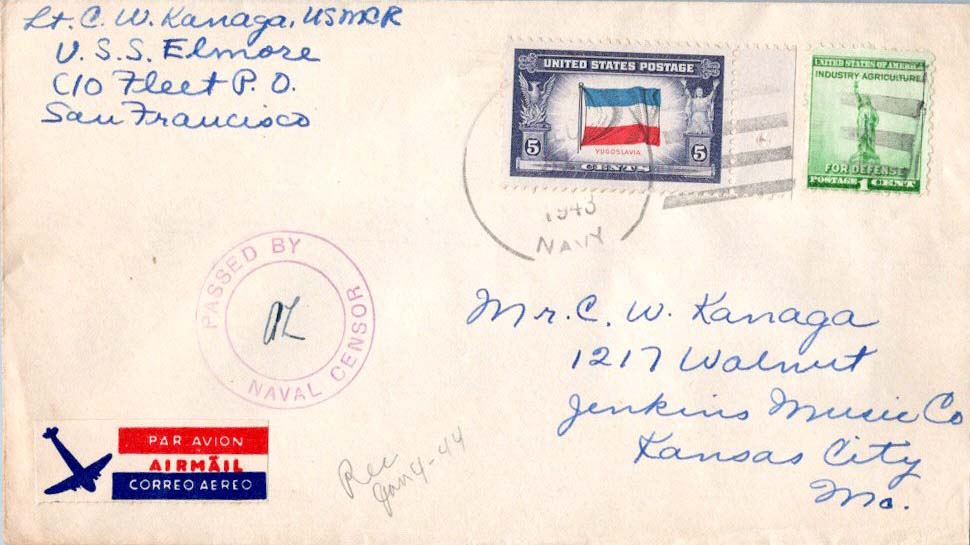 Lt. C. W. Kanaga, USNR
U. S. S. Elmore
C/O Fleet P. O.
San Francisco
UNITED STATES POSTAGE
YUGOSLAVIA
5 CENTS 5
UNITED STATES OF AMERICA
INDUSTRY AGRICULTURE
FOR DEFENSE
POSTAGE 1 CENT
1943
NAVY
PASSED BY
NAVAL CENSOR
Mr. C. W. Kanaga
1217 Walnut
Jenkins Music Co
Kansas City
Mo.
PAR AVION
AIRMAIL
CORREO AEREO
Rec
Jan 4-44